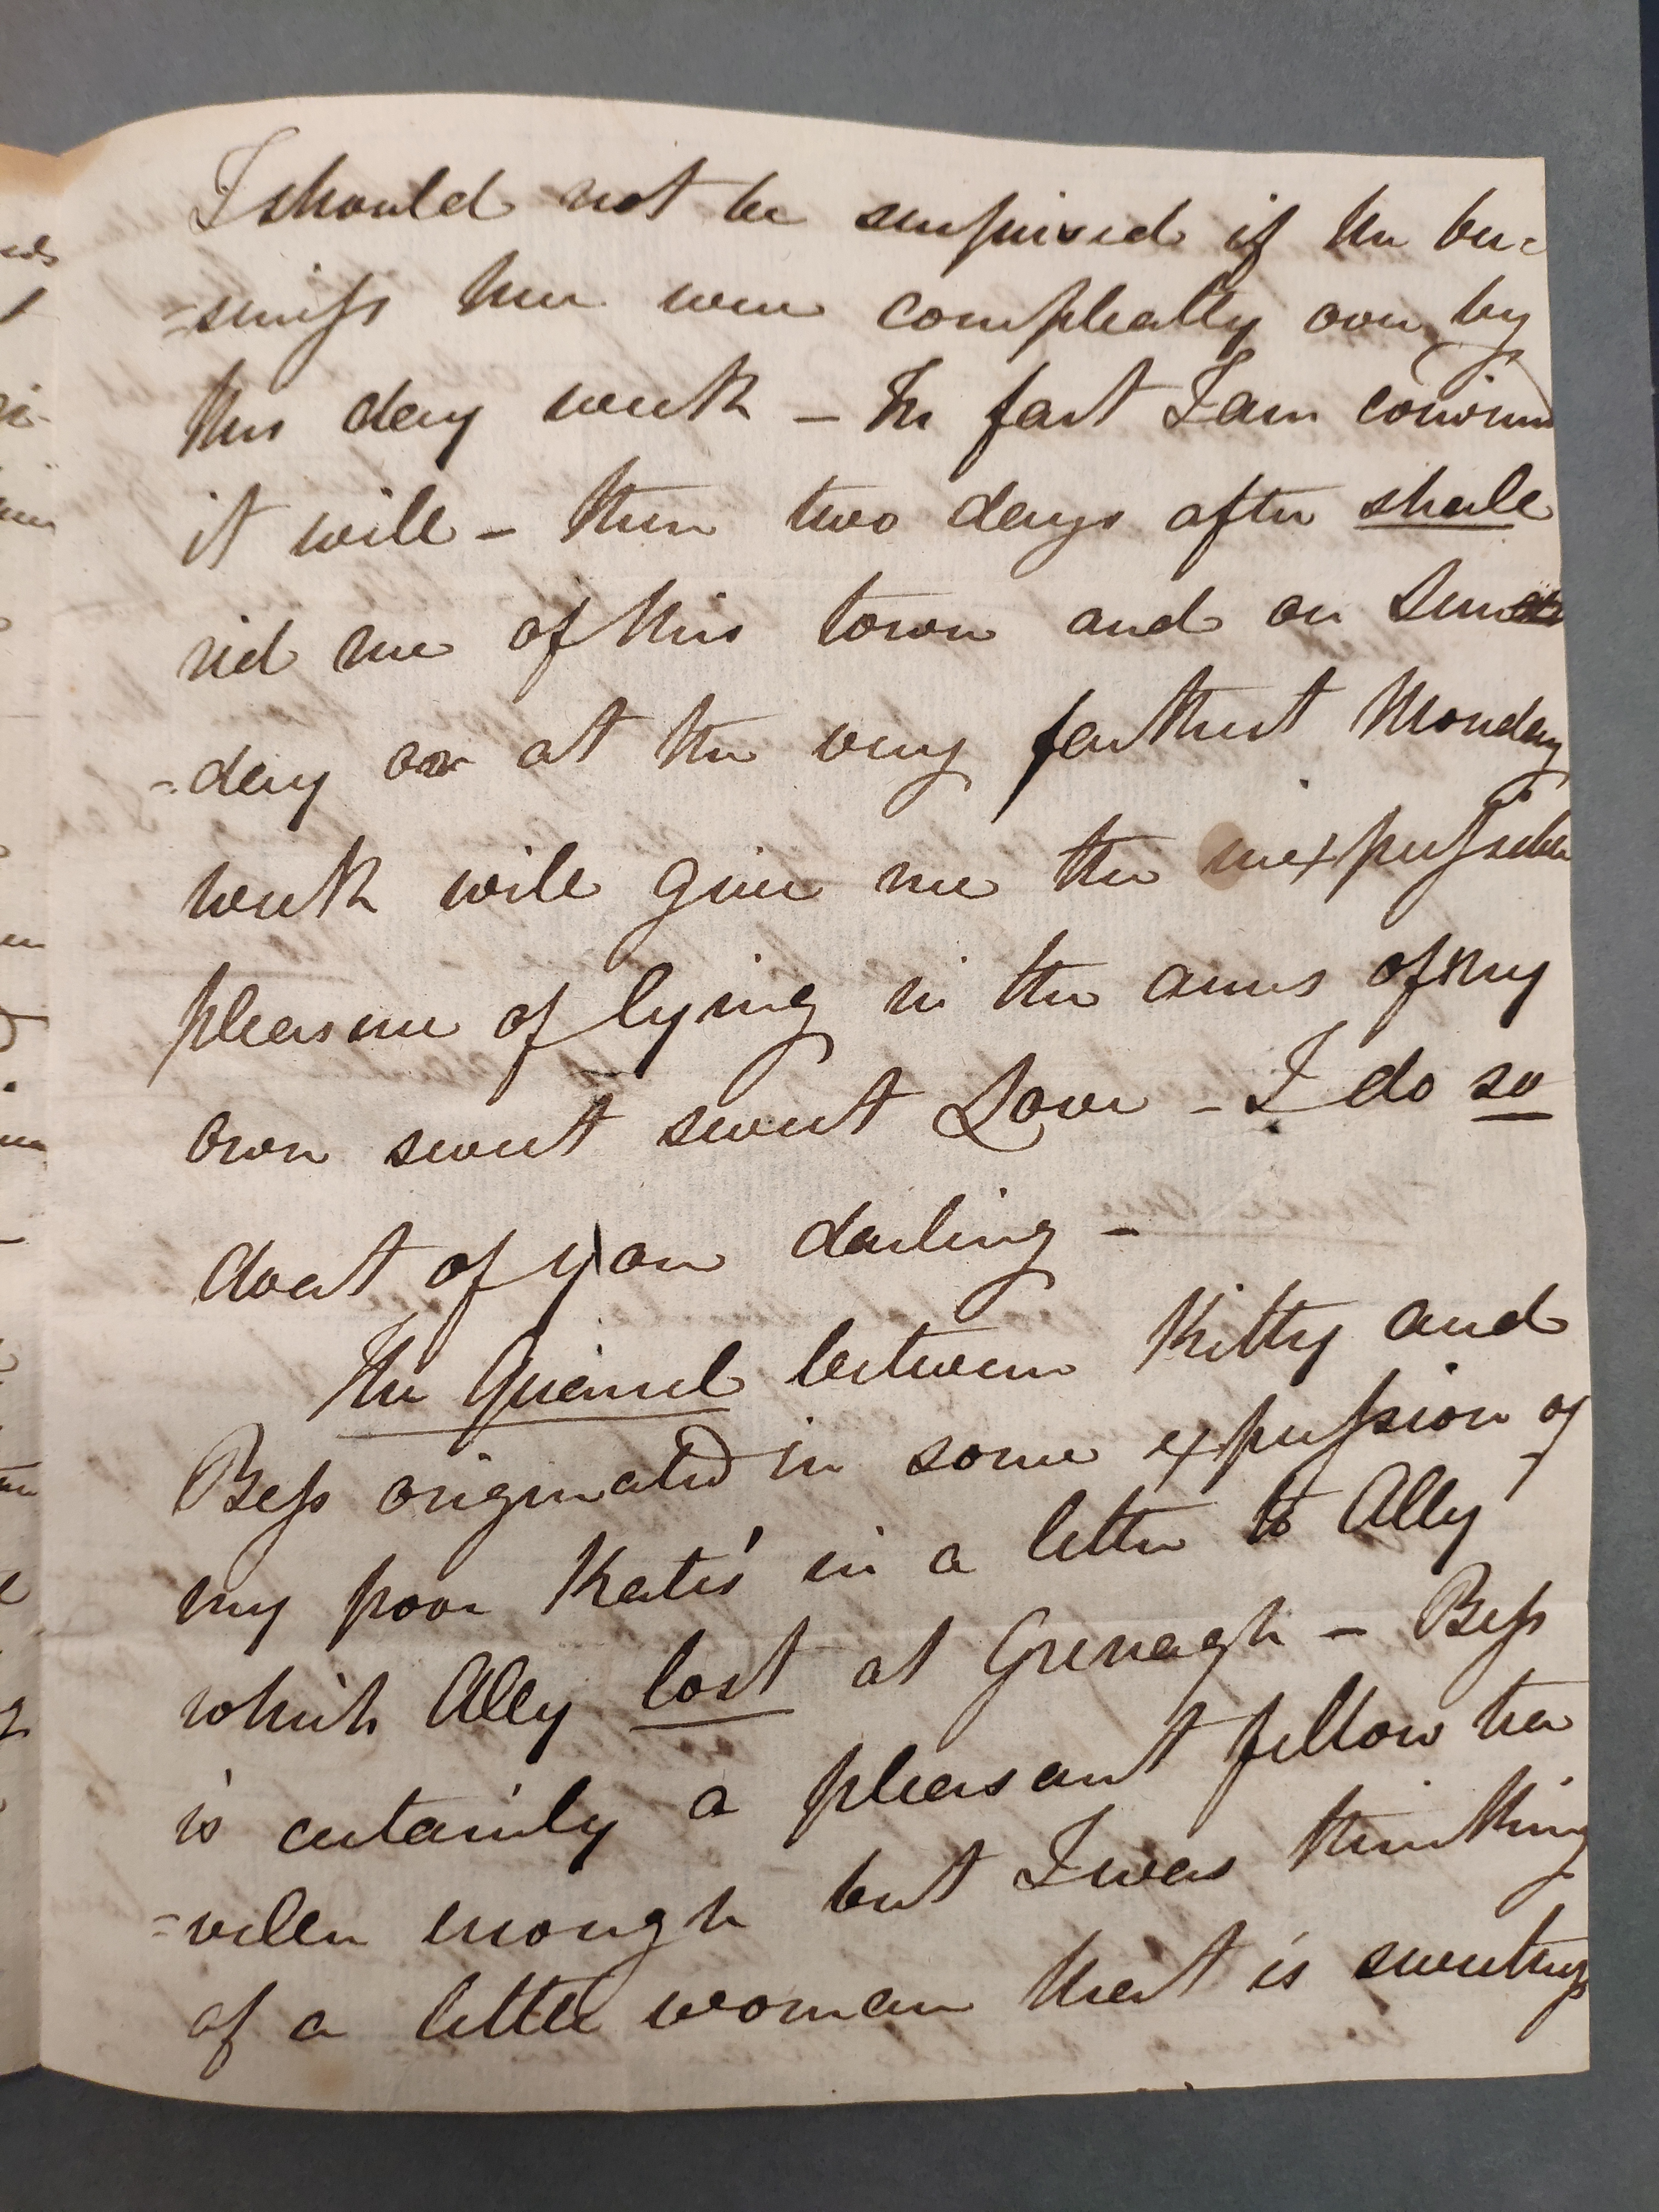 I should not be surprised if the bu=
=siness here were compleatly over by
this day week – In fact I am convinced
it will – then two days after shall
rid me of this town and on Sun
=day or at the very farthest Monday
week will give me the inexpressible
pleasure of lying in the arms of my
own sweet sweet Love – I do so
doat of you darling –
The Quarrel between Kitty and
Bess originated in some expression of
my poor Kate's in a letter to Ally
which Ally lost at Grenagh – Bess
is certainly a pleasant fellow tra
=veller enough but I was thinking
of a little woman that is sweeter